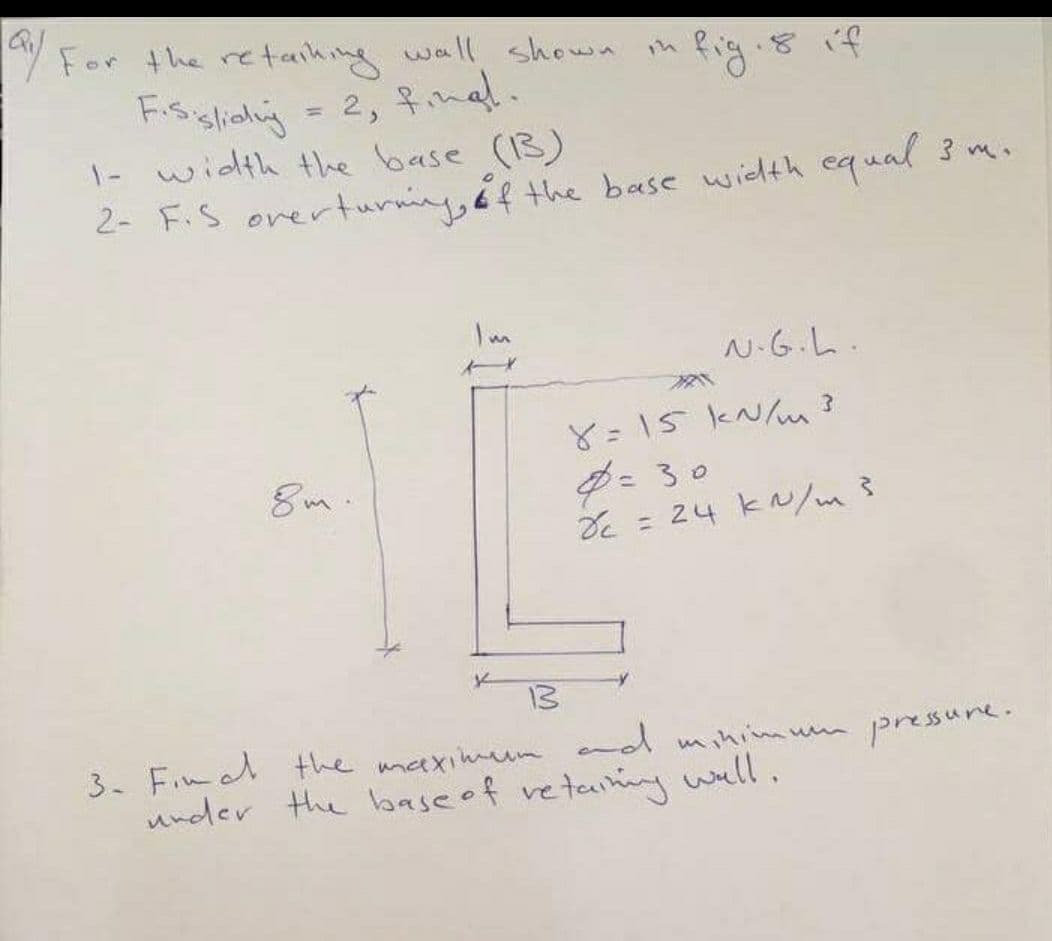 Q1/ For the retaining wall shown in fig.8 if
F.S.sliding = 2, find.
1- width the base (B)
2- F.S overturning, if the base width equal 3 m.
1m
N.G.L.
γ = 15 kN/m³
8m.
ϕ = 30
γc = 24 kN/m³
B
3- Find the maximum and minimum pressure.
under the base of retaining wall.